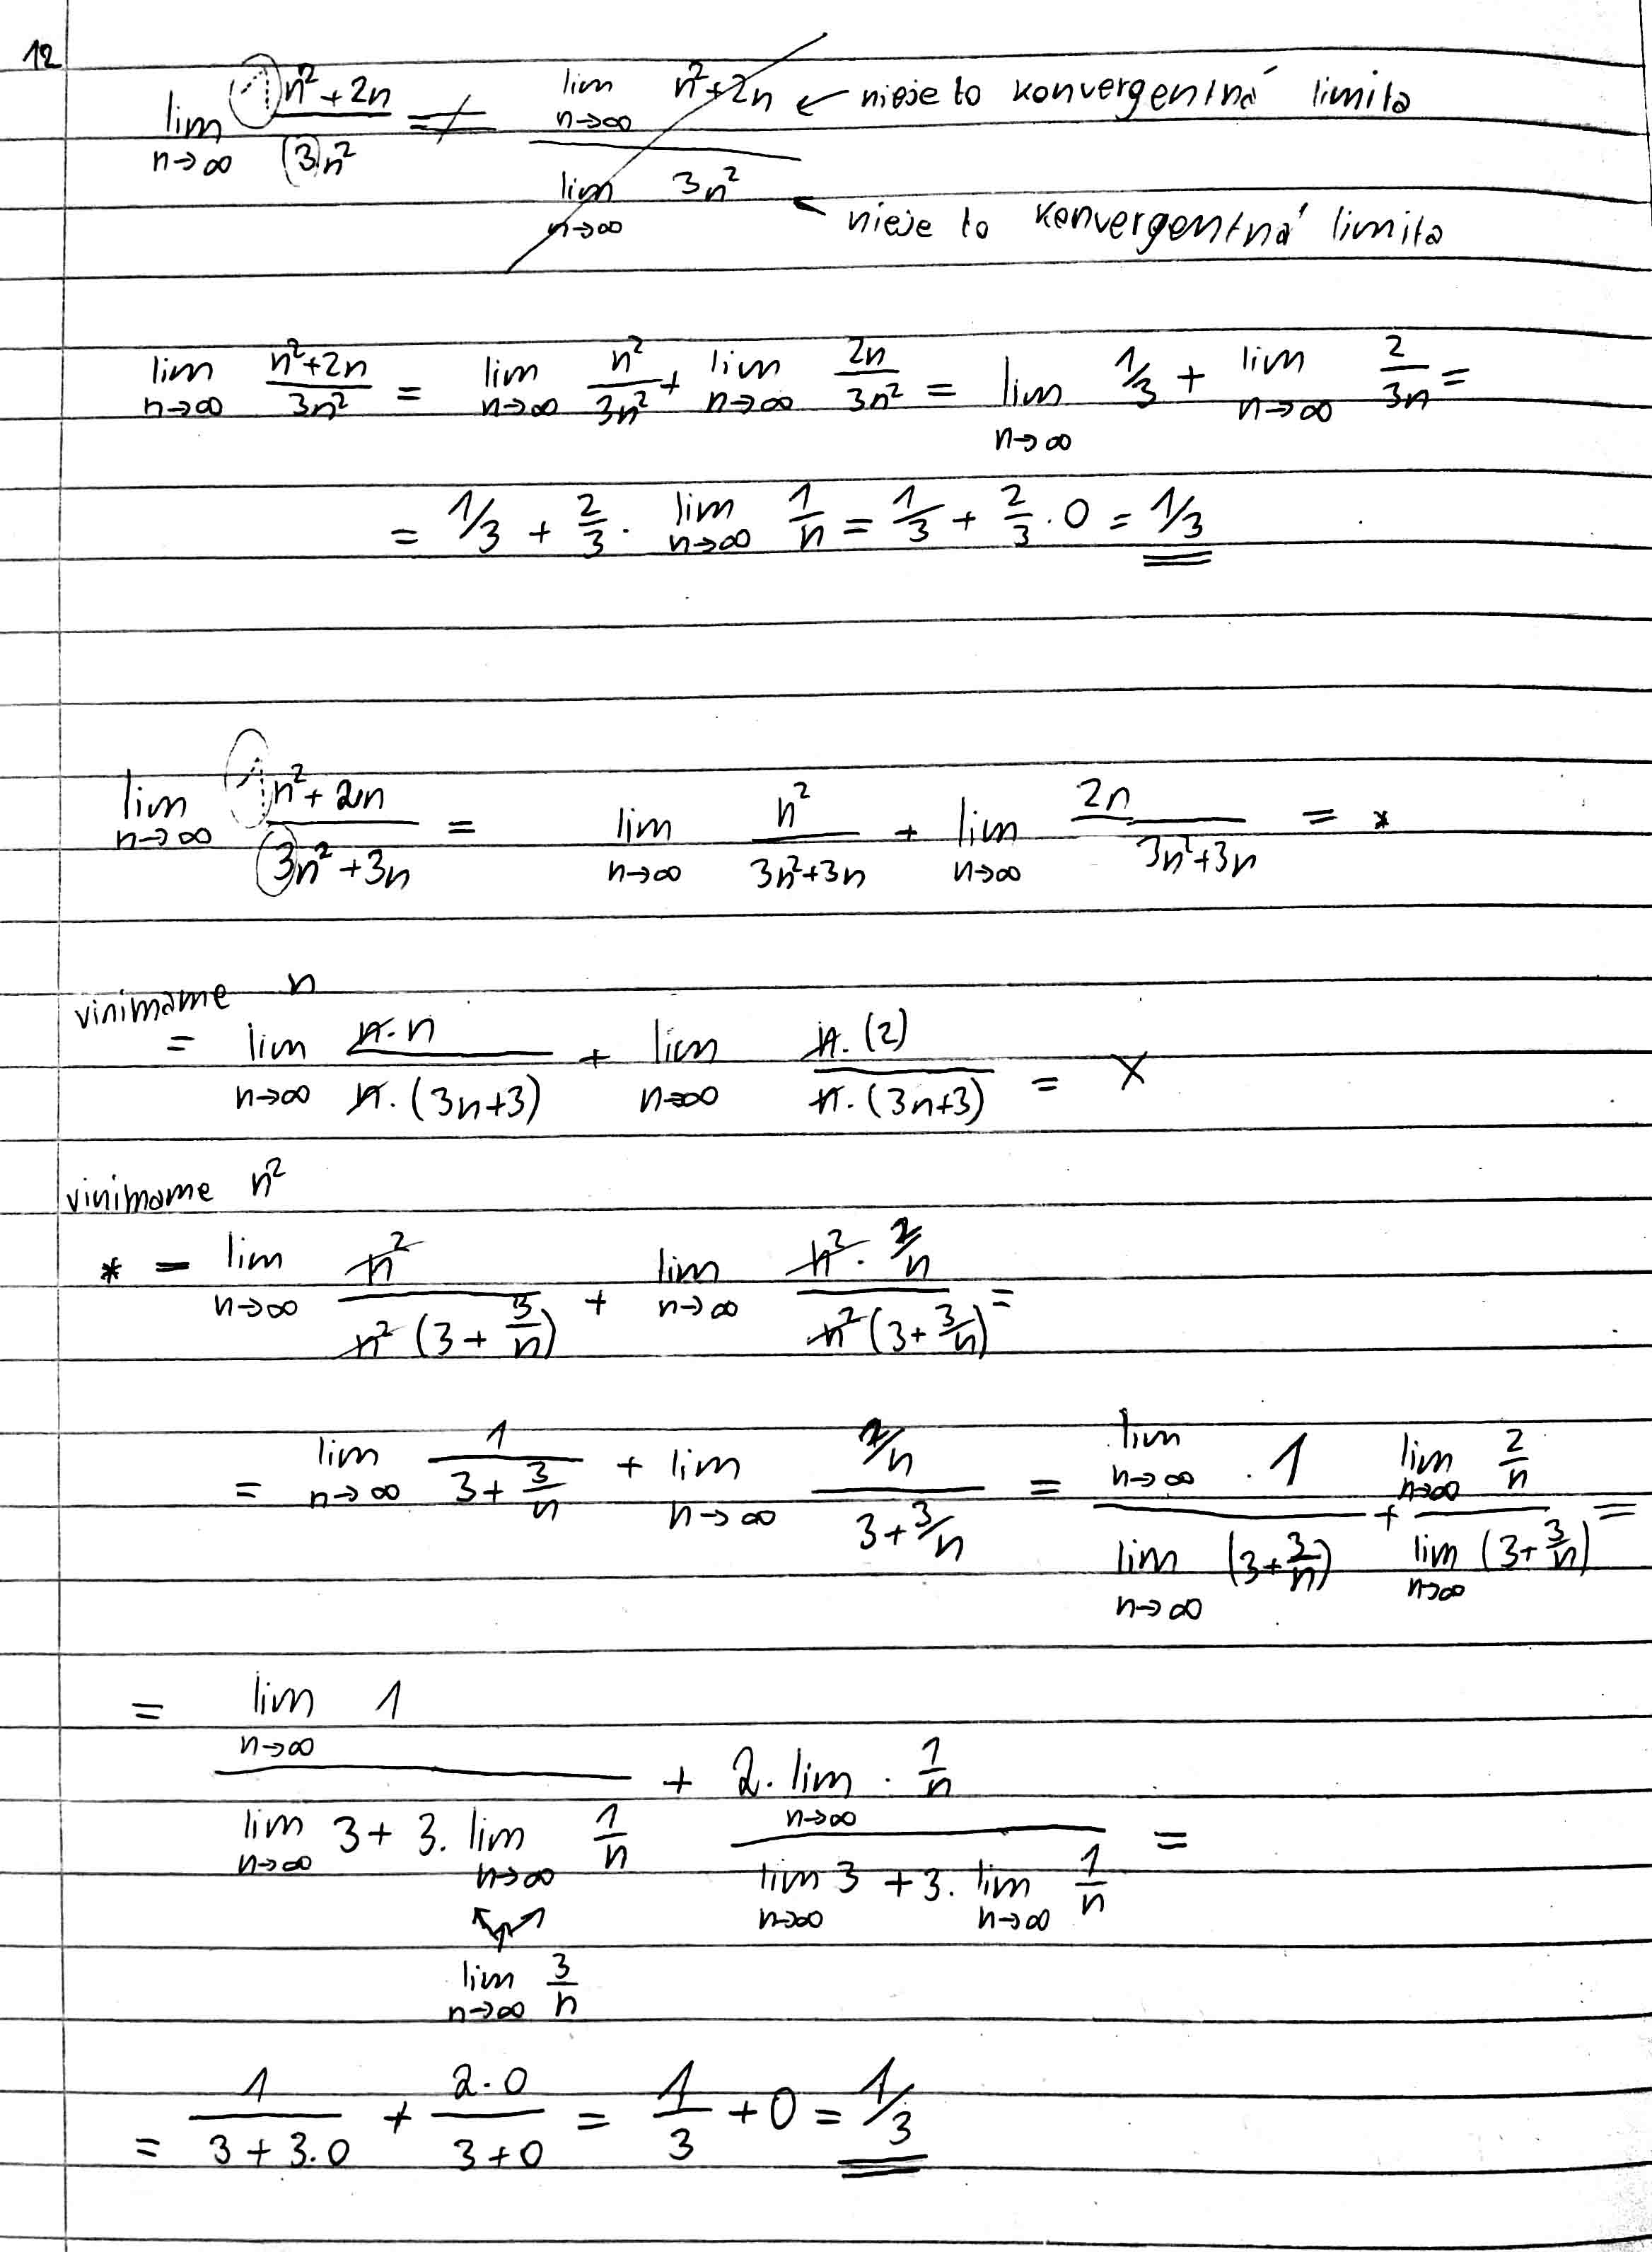 12
lim n→∞ 1n²+2n / 3n² ≠ lim n→∞ n²+2n / lim n→∞ 3n²
← nieje to konvergentná limita
← nieje to konvergentná limita
lim n→∞ n²+2n / 3n² = lim n→∞ n² / 3n² + lim n→∞ 2n / 3n² = lim n→∞ 1/3 + lim n→∞ 2 / 3n =
= 1/3 + 2/3 · lim n→∞ 1/n = 1/3 + 2/3 · 0 = 1/3
lim n→∞ 1n²+2n / 3n²+3n = lim n→∞ n² / 3n²+3n + lim n→∞ 2n / 3n²+3n = *
vinimame n
= lim n→∞ n·n / n·(3n+3) + lim n→∞ n·(2) / n·(3n+3) = X
vinimame n²
* = lim n→∞ n² / n²(3+3/n) + lim n→∞ n²·2/n / n²(3+3/n) =
= lim n→∞ 1 / 3+3/n + lim n→∞ 2/n / 3+3/n = lim n→∞ · 1 / lim n→∞ (3+3/n) + lim n→∞ 2/n / lim n→∞ (3+3/n) =
= lim n→∞ 1 / lim n→∞ 3+3· lim n→∞ 1/n + 2· lim n→∞ · 1/n / lim n→∞ 3+3· lim n→∞ 1/n =
lim n→∞ 3/n
= 1 / 3+3·0 + 2·0 / 3+0 = 1/3 + 0 = 1/3